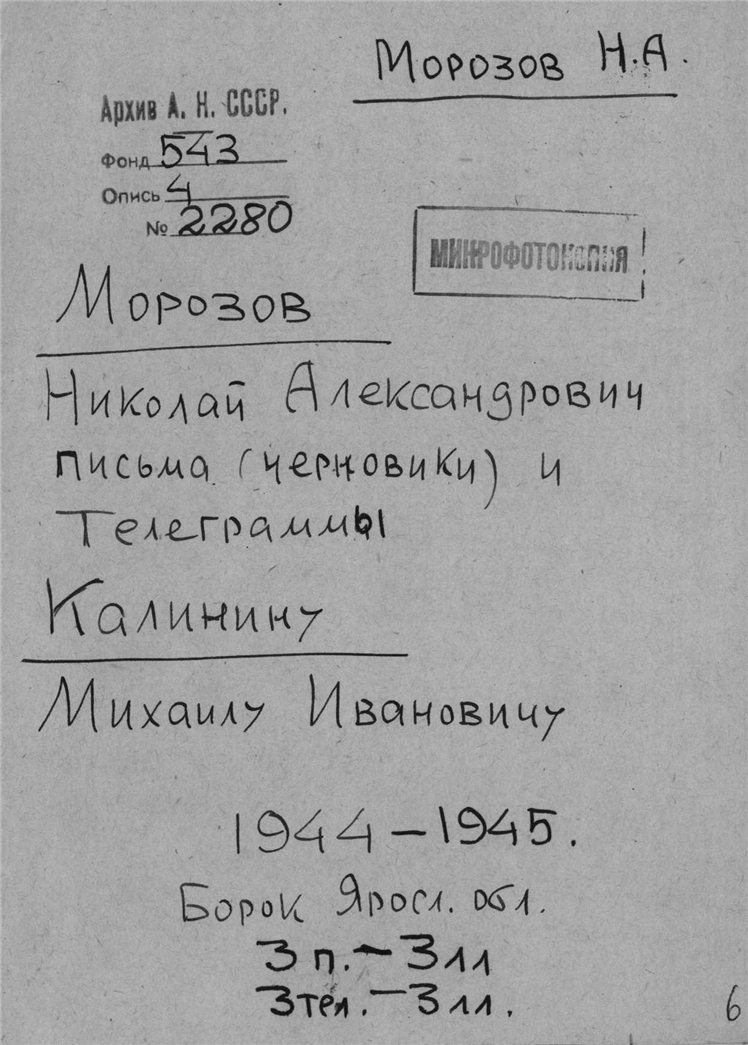 Морозов Н.А.
Архив А. Н. СССР.
Фонд 543
Опись 4
№ 2280
МИКРОФОТОКОПИЯ
Морозов
Николай Александрович
письма (черновики) и
Телеграммы
Калинину
Михаилу Ивановичу
1944-1945.
Борок Яросл. обл.
3 п. - 3 лл
3 тел. - 3 лл.
6